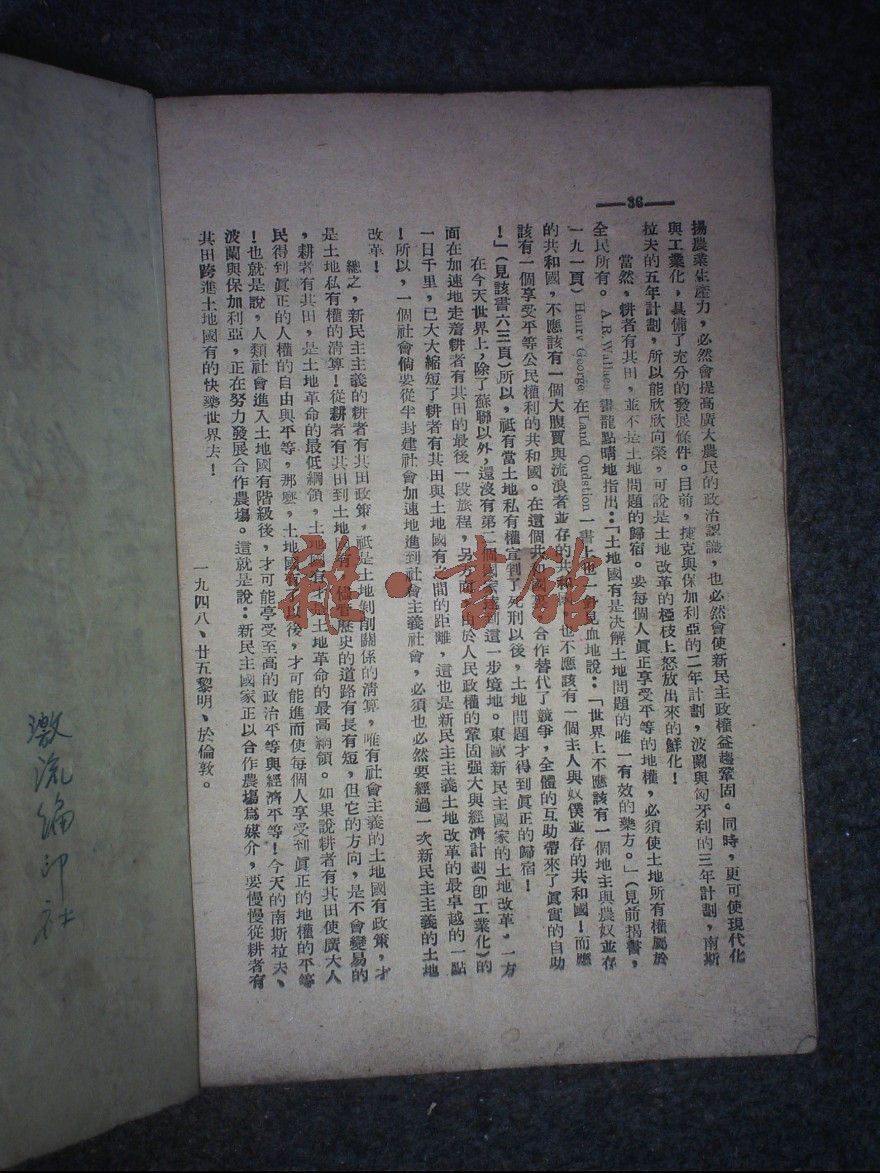 —36—
揚農業生產力，必然會提高廣大農民的政治認識，也必然會使新民主政權益趨鞏固。同時，更可使現代化
與工業化，具備了充分的發展條件。目前，捷克與保加利亞的二年計劃，波蘭與匈牙利的三年計劃，南斯
拉夫的五年計劃，所以能欣欣向榮，可說是土地改革的極枝上怒放出來的鮮化！
當然，耕者有其田，並不是土地問題的歸宿。要每個人眞正享受平等的地權，必須使土地所有權屬於
全民所有。A.R.Wallaes 畫龍點晴地指出：「土地國有是決解土地問題的唯一有效的藥方。」（見前揭書，
一九一頁）Henry George 在Land Qudstion 一書上也一針見血地說：「世界上不應該有一個地主與農奴並存
的共和國，不應該有一個大腹賈與流浪者並存的共和國，也不應該有一個主人與奴僕並存的共和國！而應
該有一個享受平等公民權利的共和國。在這個共和國裏，合作替代了競爭，全體的互助帶來了眞實的自助
！」（見該書六三頁）所以，祗有當土地私有權宣判了死刑以後，土地問題才得到眞正的歸宿！
在今天世界上，除了蘇聯以外，還沒有第二個國家達到這一步境地。東歐新民主國家的土地改革，一方
面在加速地走着耕者有其田的最後一段旅程，另方面，由於人民政權的鞏固强大與經濟計劃（卽工業化）的
一日千里，已大大縮短了耕者有其田與土地國有之間的距離，這也是新民主主義土地改革的最卓越的一點
！所以，一個社會倘要從半封建社會加速地進到社會主義社會，必須也必然要經過一次新民主主義的土地
改革！
總之，新民主主義的耕者有其田政策，祗是土地剝削關係的清算，唯有社會主義的土地國有政策，才
是土地私有權的清算！從耕者有其田到土地國有，儘管歷史的道路有長有短，但它的方向，是不會變易的
，耕者有其田，是土地革命的最低綱領，土地國有才是土地革命的最高綱領。如果說耕者有其田使廣大人
民得到眞正的人權的自由與平等，那麽，土地國有了以後，才可能進而使每個人享受到眞正的地權的平等
！也就是說，人類社會進入土地國有階級後，才可能享受至高的政治平等與經濟平等！今天的南斯拉夫、
波蘭與保加利亞，正在努力發展合作農塲。這就是說：新民主國家正以合作農塲爲媒介，要慢慢從耕者有
其田跨進土地國有的快樂世界去！
一九四八、廿五黎明、於倫敦。
激流編印社
雜·書館